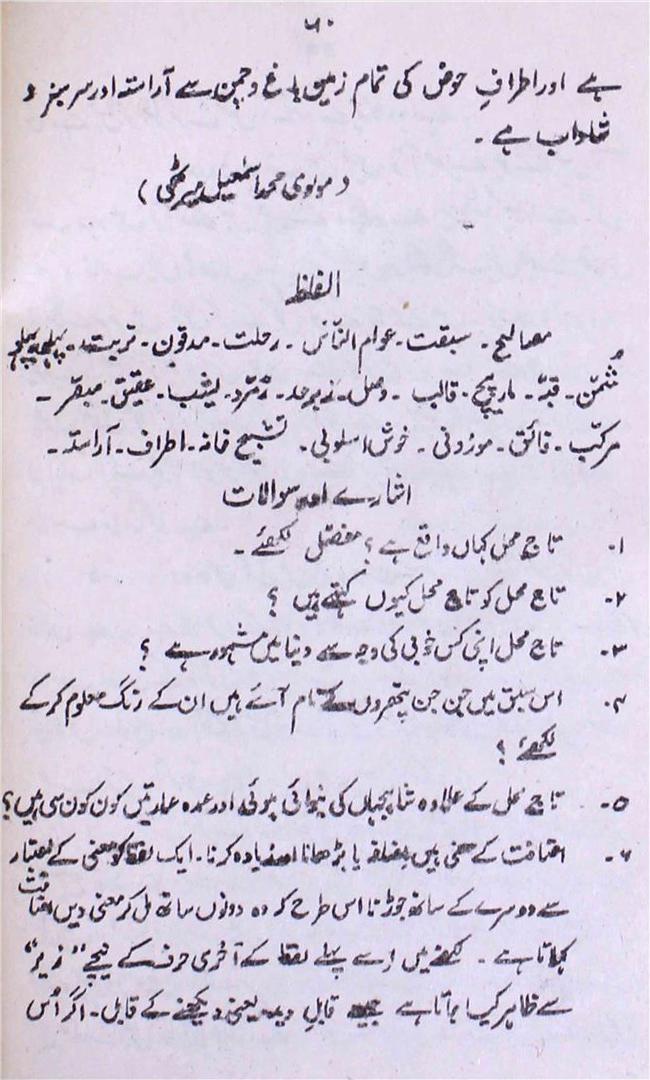 ۶۰
ہے اور اطرافِ حوض کی تمام زمین باغ و چمن سے آراستہ اور سرسبز و
شاداب ہے ۔
(مولوی محمد اسمٰعیل میرٹھی)
الفاظ
مصالیح ۔ سبقت ۔ عوام النّاس ۔ رحلت ۔ مدفون ۔ تربت ۔
مُثمّن ۔ قبّہ ۔ مارپیچ ۔ قالب ۔ وصل ۔ زبرجد ۔ زمّرد ۔ یشب ۔ عقیق ۔ مبصّر ۔
مرکّب ۔ فائق ۔ موزونی ۔ خوش اسلوبی ۔ تسبیح خانہ ۔ اطراف ۔ آراستہ ۔
اشارے اور سوالات
۱۔ تاج محل کہاں واقع ہے ؟ مفصّل لکھئے ۔
۲۔ تاج محل کو تاج محل کیوں کہتے ہیں ؟
۳۔ تاج محل اپنی کس خوبی کی وجہ سے دنیا میں مشہور ہے ؟
۴۔ اس سبق میں جن جن پتھروں کے نام آئے ہیں ان کے رنگ معلوم کر کے
لکھئے ؟
۵۔ تاج محل کے علاوہ شاہجہاں کی بنوائی ہوئی اور عمدہ عمارتیں کون کون سی ہیں ؟
۶۔ اضافت کے معنی ہیں اضافہ یا بڑھانا اور زیادہ کرنا ۔ ایک لفظ کو معنی کے اعتبار
سے دوسرے کے ساتھ جوڑنا اس طرح کہ وہ دونوں ساتھ مل کر معنی دیں اضافت
کہلاتا ہے ۔ لکھنے میں اسے پہلے لفظ کے آخری حرف کے نیچے "زیر"
سے ظاہر کیا جاتا ہے جیسے قابلِ دید یعنی دیکھنے کے قابل ۔ اگر اُس